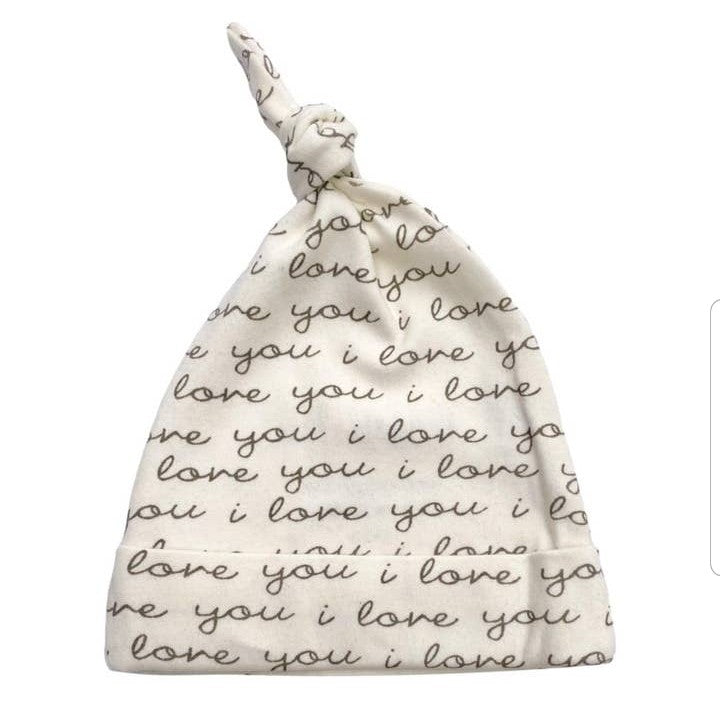 you lo
i love you
ove you i love
e you i love yo
love you i love
ove you i love yo
love you i love y
you i love you i lo
love you i love
love you i love yo
ove you i love you i
love you i love yo